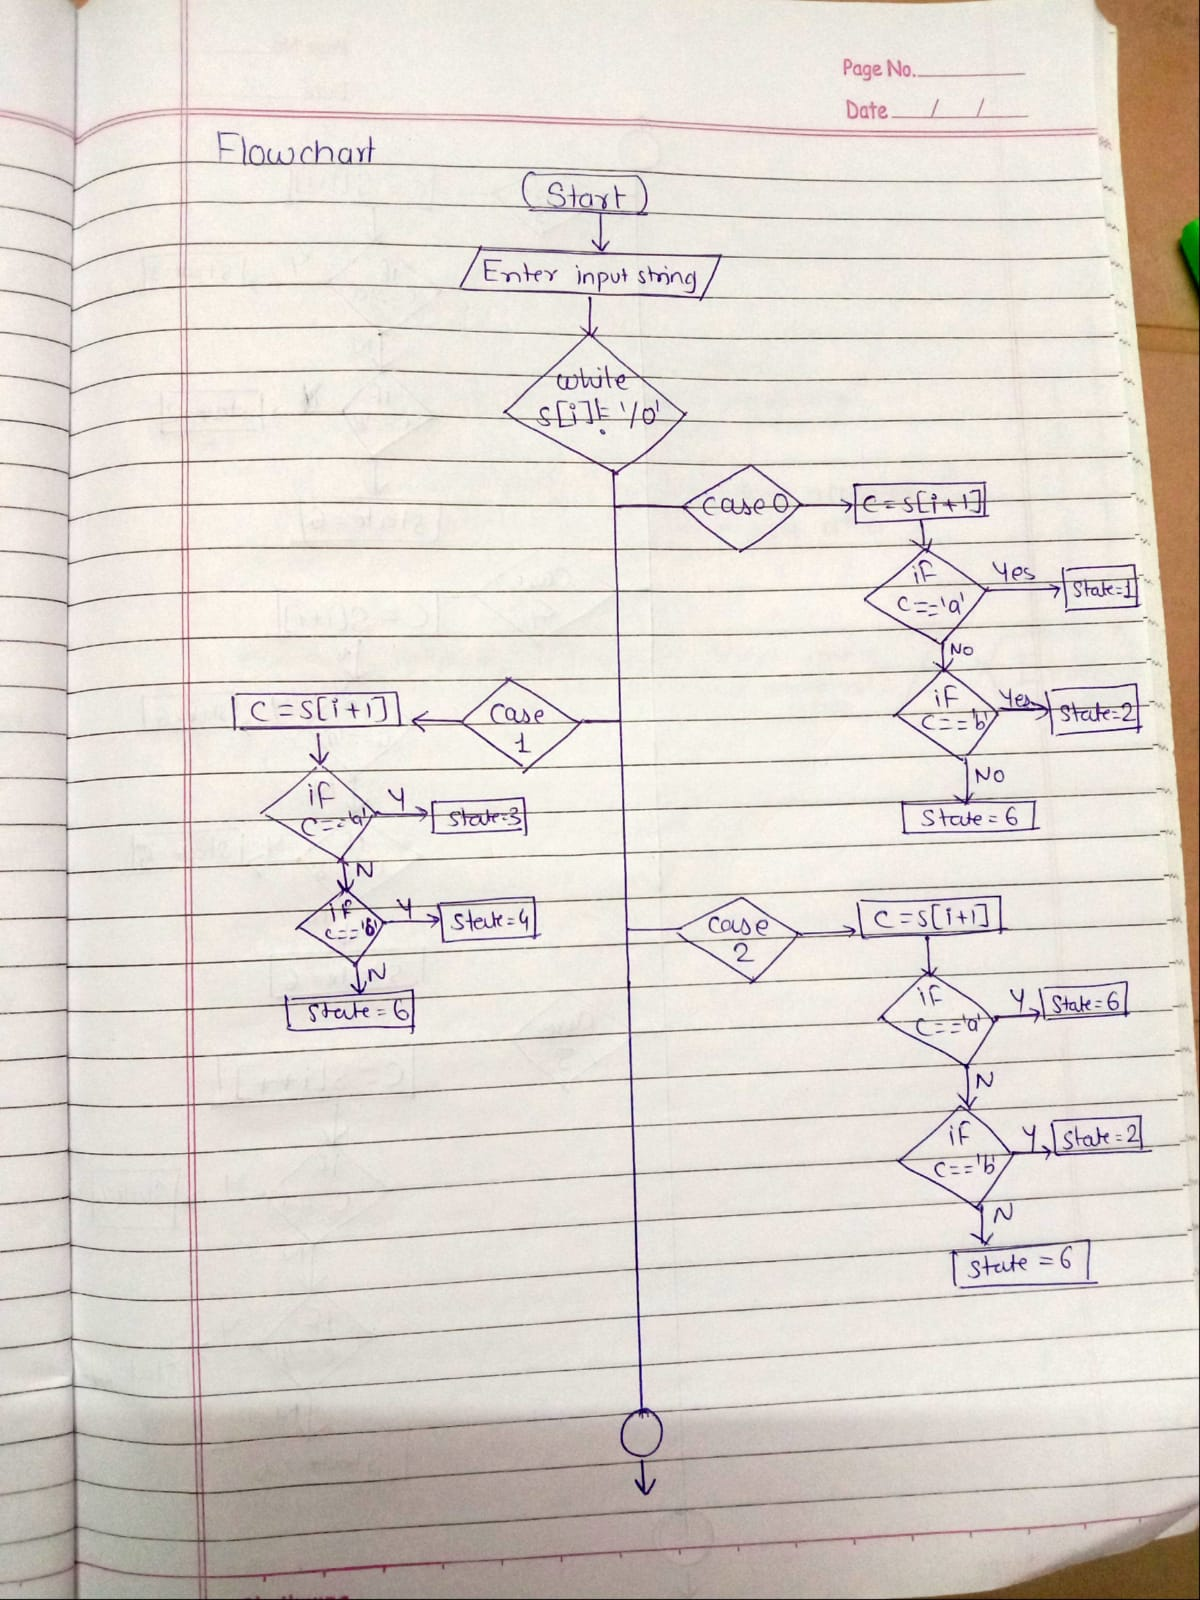 Page No.
Date / /
Flowchart
Start
Enter input string
while
s[i]!= '/0'
case 0
C=S[i+1]
if
c=='a'
Yes
State=1
No
if
c=='b'
Yes
State=2
NO
State=6
case
1
C=S[i+1]
if
c=='a'
Y
State=3
N
if
c=='b'
Y
State=4
N
State=6
case
2
C=S[i+1]
if
c=='a'
Y
State=6
N
if
c=='b'
Y
State=2
N
State=6